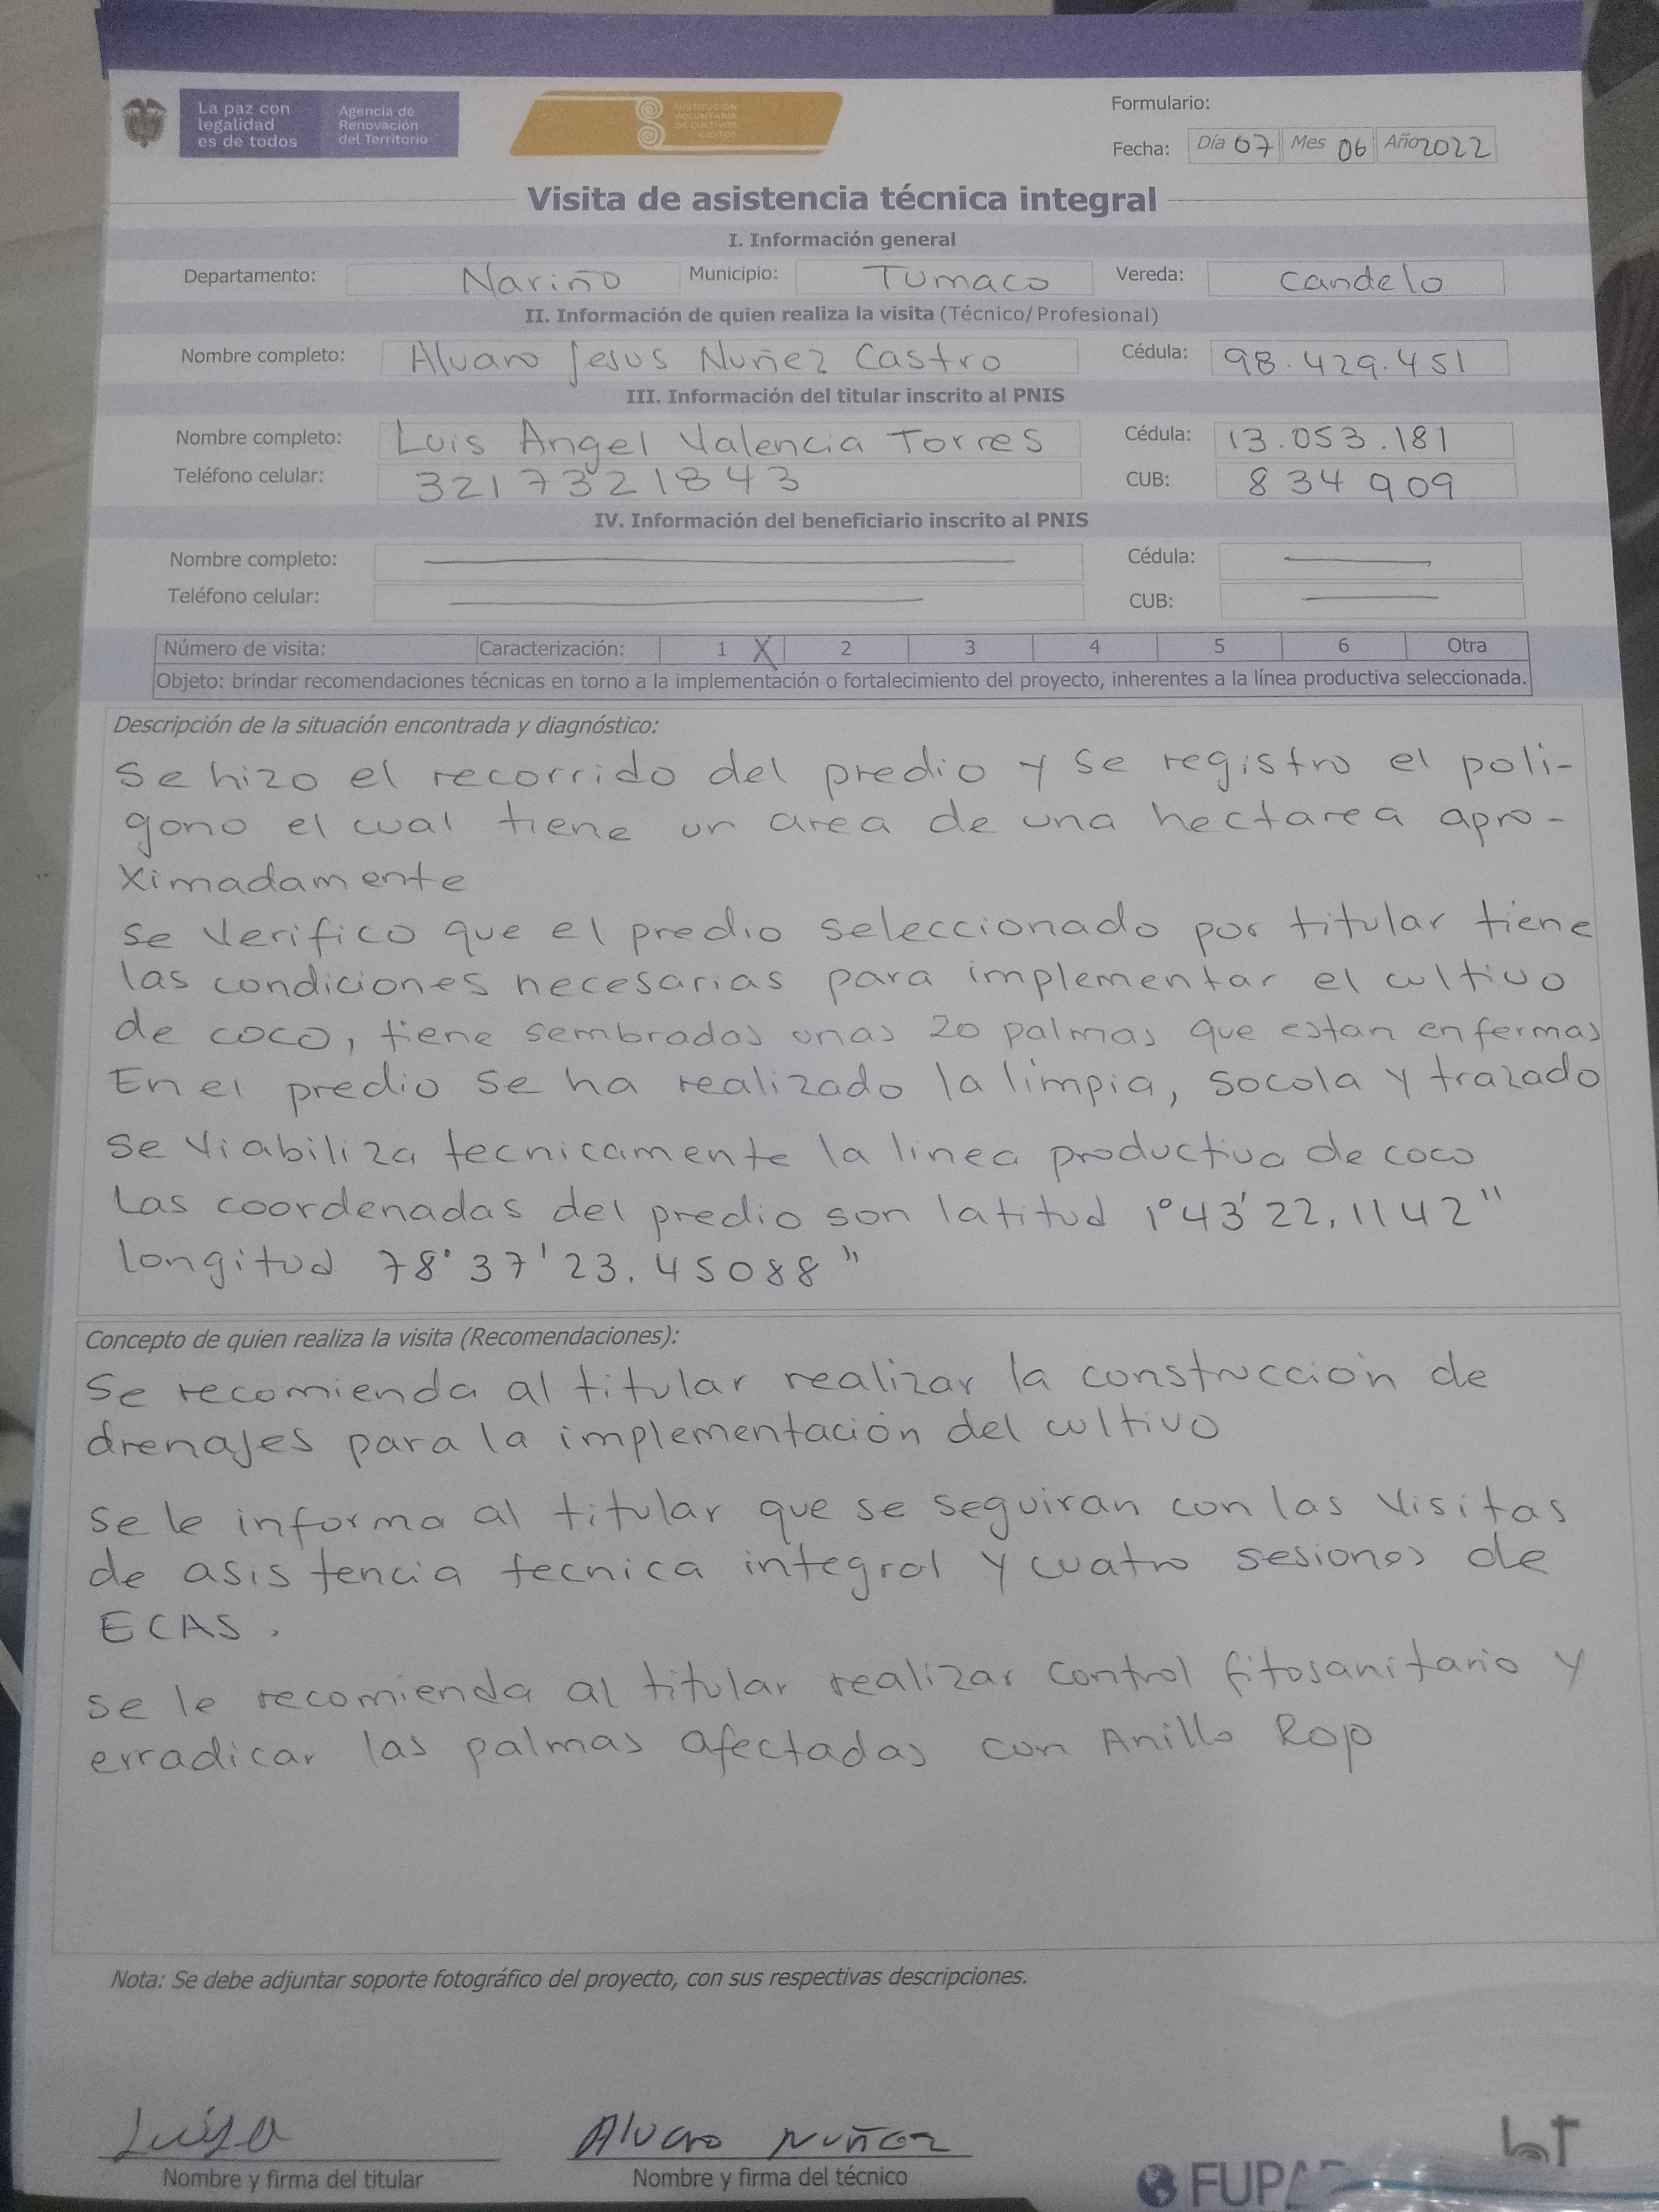 La paz con
legalidad
es de todos
Agencia de
Renovación
del Territorio
SUSTITUCIÓN
VOLUNTARIA
DE CULTIVOS
ILÍCITOS
Formulario:
Fecha: Día 07 Mes 06 Año 2022
Visita de asistencia técnica integral
I. Información general
Departamento: Nariño Municipio: Tumaco Vereda: Candelo
II. Información de quien realiza la visita (Técnico/Profesional)
Nombre completo: Alvaro Jesus Nuñez Castro Cédula: 98.429.451
III. Información del titular inscrito al PNIS
Nombre completo: Luis Angel Valencia Torres Cédula: 13.053.181
Teléfono celular: 3217321843 CUB: 834909
IV. Información del beneficiario inscrito al PNIS
Nombre completo: Cédula:
Teléfono celular: CUB:
Número de visita: Caracterización: 1 X 2 3 4 5 6 Otra
Objeto: brindar recomendaciones técnicas en torno a la implementación o fortalecimiento del proyecto, inherentes a la línea productiva seleccionada.
Descripción de la situación encontrada y diagnóstico:
Se hizo el recorrido del predio y se registro el poli-
gono el cual tiene un area de una hectarea apro-
ximadamente
se verifico que el predio seleccionado por titular tiene
las condiciones necesarias para implementar el cultivo
de coco, tiene sembradas unas 20 palmas que estan enfermas
En el predio se ha realizado la limpia, socola y trazado
se viabiliza tecnicamente la linea productiva de coco
Las coordenadas del predio son latitud 1°43'22,1142"
longitud 78°37'23.45088"
Concepto de quien realiza la visita (Recomendaciones):
Se recomienda al titular realizar la construcción de
drenajes para la implementación del cultivo
se le informa al titular que se seguiran con las visitas
de asistencia tecnica integral y cuatro sesiones de
ECAS.
se le recomienda al titular realizar control fitosanitario y
erradicar las palmas afectadas con Anillo Rojo
Nota: Se debe adjuntar soporte fotográfico del proyecto, con sus respectivas descripciones.
Alvaro Nuñez
Nombre y firma del titular
Nombre y firma del técnico